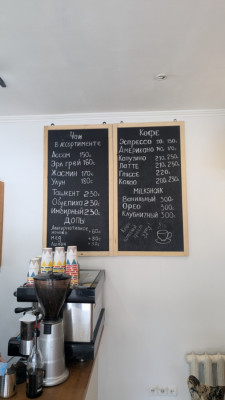 Чай
в ассортименте
Ассам 150.
Эрл грей 160.
Жасмин 170.
Улун 180.
Ташкент 250.
Облепиха 250.
Имбирный 250.
ДОПЫ
молоко +60
+60
Кофе
Эспрессо 90. 150.
Американо 150.
Капучино 210. 250.
Латте 210. 250.
Глиссе 220.
Какао 200. 250.
МИЛКШЕЙК
Ванильный 300.
Орео 300.
Клубничный 300.